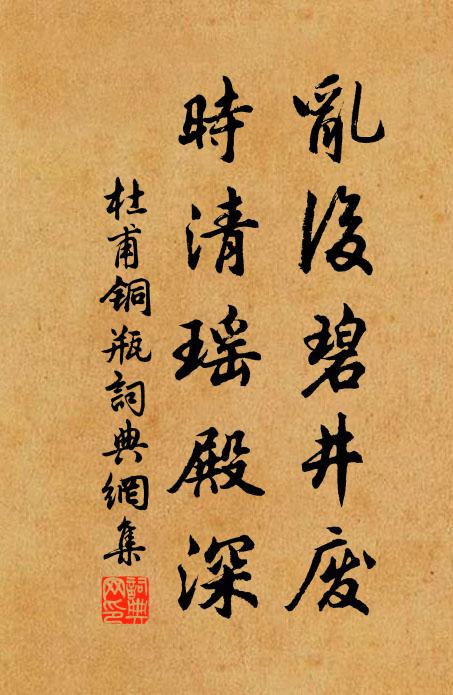 亂後碧井废
時清瑶殿深
杜甫銅瓶詞典網集
詞典网印